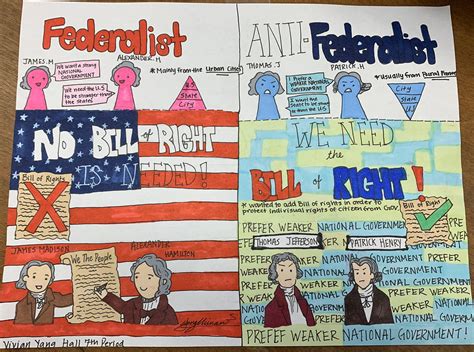 Federalist
JAMES.M
ALEXANDER.H
We want a strong
NATIONAL
GOVERNMENT!
We need the U.S
to be stronger than
the states!
* Mainly from the Urban Cities
U.S
State
City
NO BILL of RIGHT
IS NEEDED!
Bill of Rights
JAMES MADISON
ALEXANDER
HAMILTON
We The People
Vivian Yang Hall 7th Period
ANTI-Federalist
THOMAS.J
PATRICK.H
Prefer a
WEAKER NATIONAL
GOVERNMENT!
I want the
State to be stronger
than the U.S!
* Usually from Rural
City
State
U.S
WE NEED
the
BILL of RIGHT!
* wanted to add Bill of rights in order to
protect individual rights of citizen from Gov.
Bill of Right
PREFER WEAKER NATIONAL GOVERNMENT!
THOMAS JEFFERSON
PATRICK HENRY
PREFER WEAKER NATIONAL GOVERNMENT!